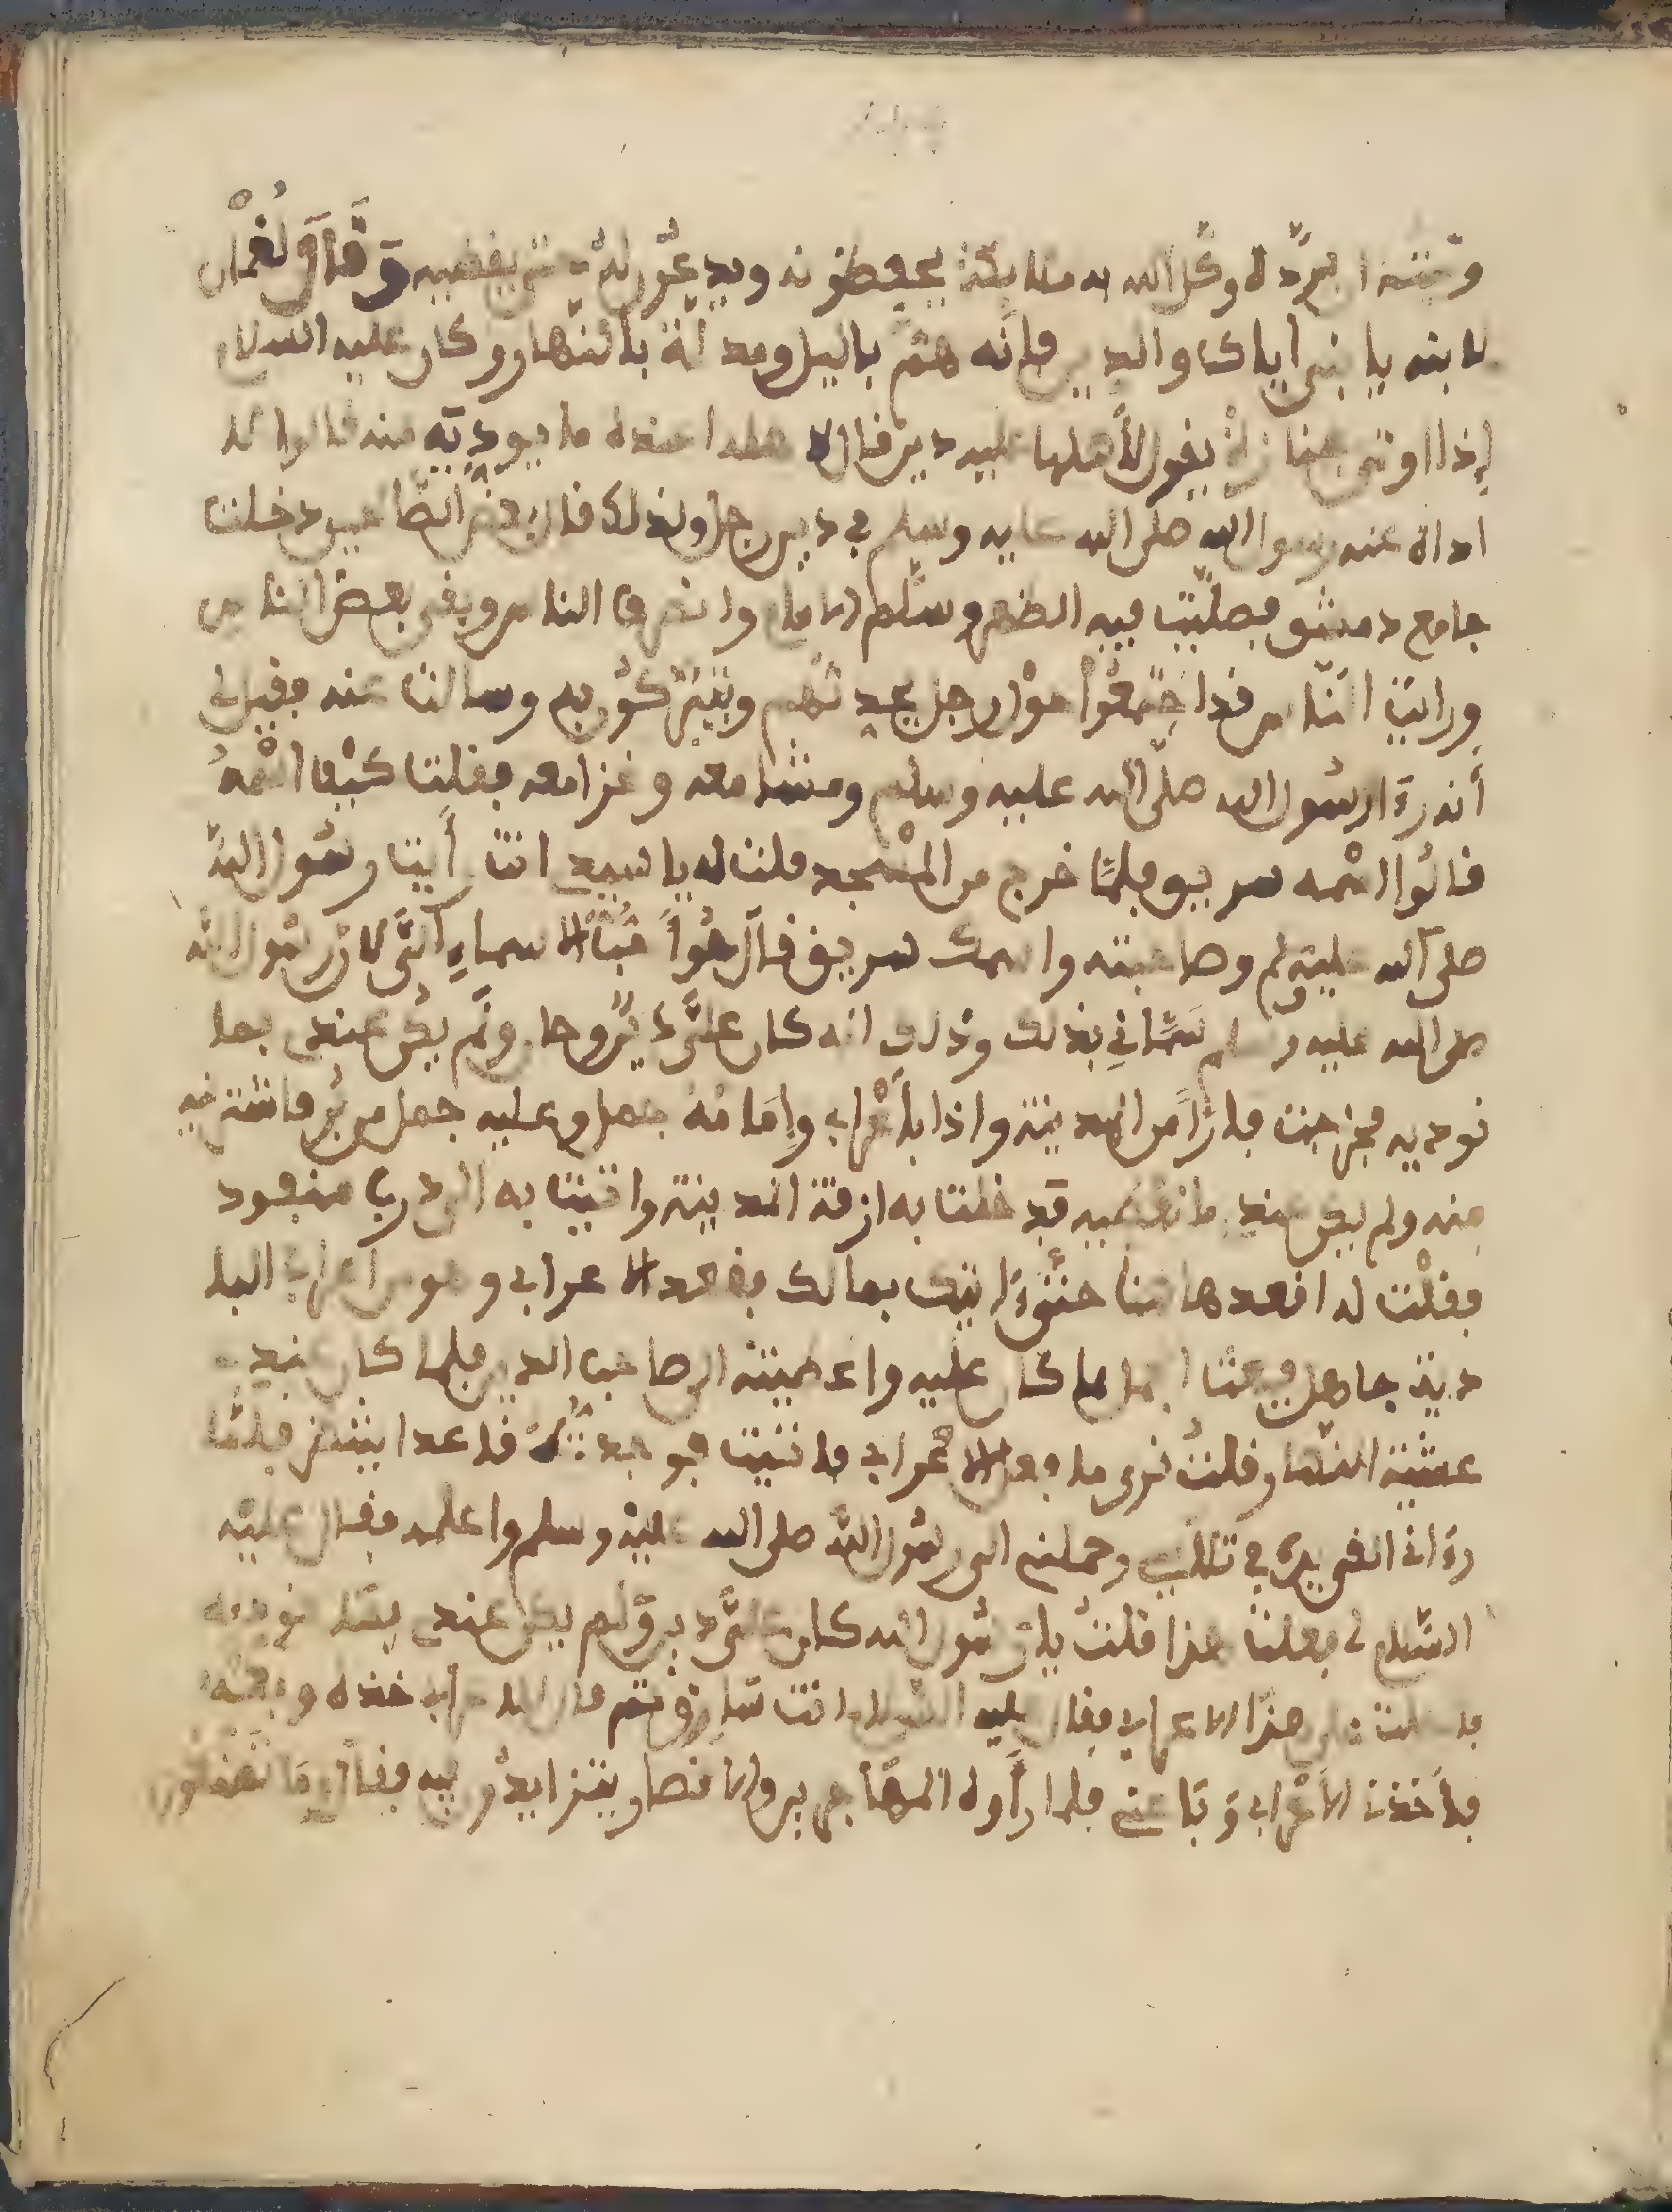 ونيته ان يرده وكل الله به ملايكة يحفظونه ويدعون له حتى يقضيه وقال لقمان
لابنه يا بني اياك والدين فإنه هم باليل ومدلة بالنهار وكان عليه السلام
إذا اوتي بجنازة يقول لأهلها عليه دين فان لا هل عنده ما يوديه منه قالوا لا
اداه عنه رسول الله صلى الله عليه وسلم في دين رجل ولذلك قال بعض الصالحين دخلت
جامع دمشق فصليت فيه الظهر وسلم الامام وانصرف الناس وبقي بعض الناس
ورايت الناس قد اجتمعوا حول رجل يحدثهم ويتبركون به وسالت عنه فقيل لي
أنه رءا رسول الله صلى الله عليه وسلم ومشا معه وغزا معه فقلت كيف اسمه
قالوا اسمه سريق فلما خرج من المسجد قلت له يا سيدي انت رأيت رسول الله
صلى الله عليه وسلم وصاحبته واسمك سريق قال هو أحب الاسماء الي لان رسول الله
صلى الله عليه وسلم سماني بذلك وذلك انه كان علي دين وحل ولم يكن عندي بما
نوديه فخرجت فارا من المدينة واذا بأعرابي وامامه جمل وعليه حمل من بر فاشتريته
منه ولم يكن عندي ما نقضيه فدخلت به ازقة المدينة واتيت به الى درب منفود
فقلت له اقعد هاهنا حتى ءاتيك بمالك فقعد الاعرابي وهو من اعراب البا
دية جاهل وبعت الجمل بما كان عليه واعطيته الى صاحب الدين فلما كان عند
عشية النهار قلت نرى ما فعل الاعرابي فاتيت فوجدته قاعدا ينتظر فلما
رءاني القى يده في تلابيب وحملني الى رسول الله صلى الله عليه وسلم واعلمه فقال عليه
السلام لم فعلت هذا قلت يا رسول الله كان علي دين ولم يكن عندي بما نوديه
هذا الاعرابي فقال عليه السلام انت سارق ثم قال للاعرابي خذه وبعه
فأخذني الأعرابي وباعني فلما رأوه المهاجرين والانصار يتزايدون فيه فقال وما تصنعون